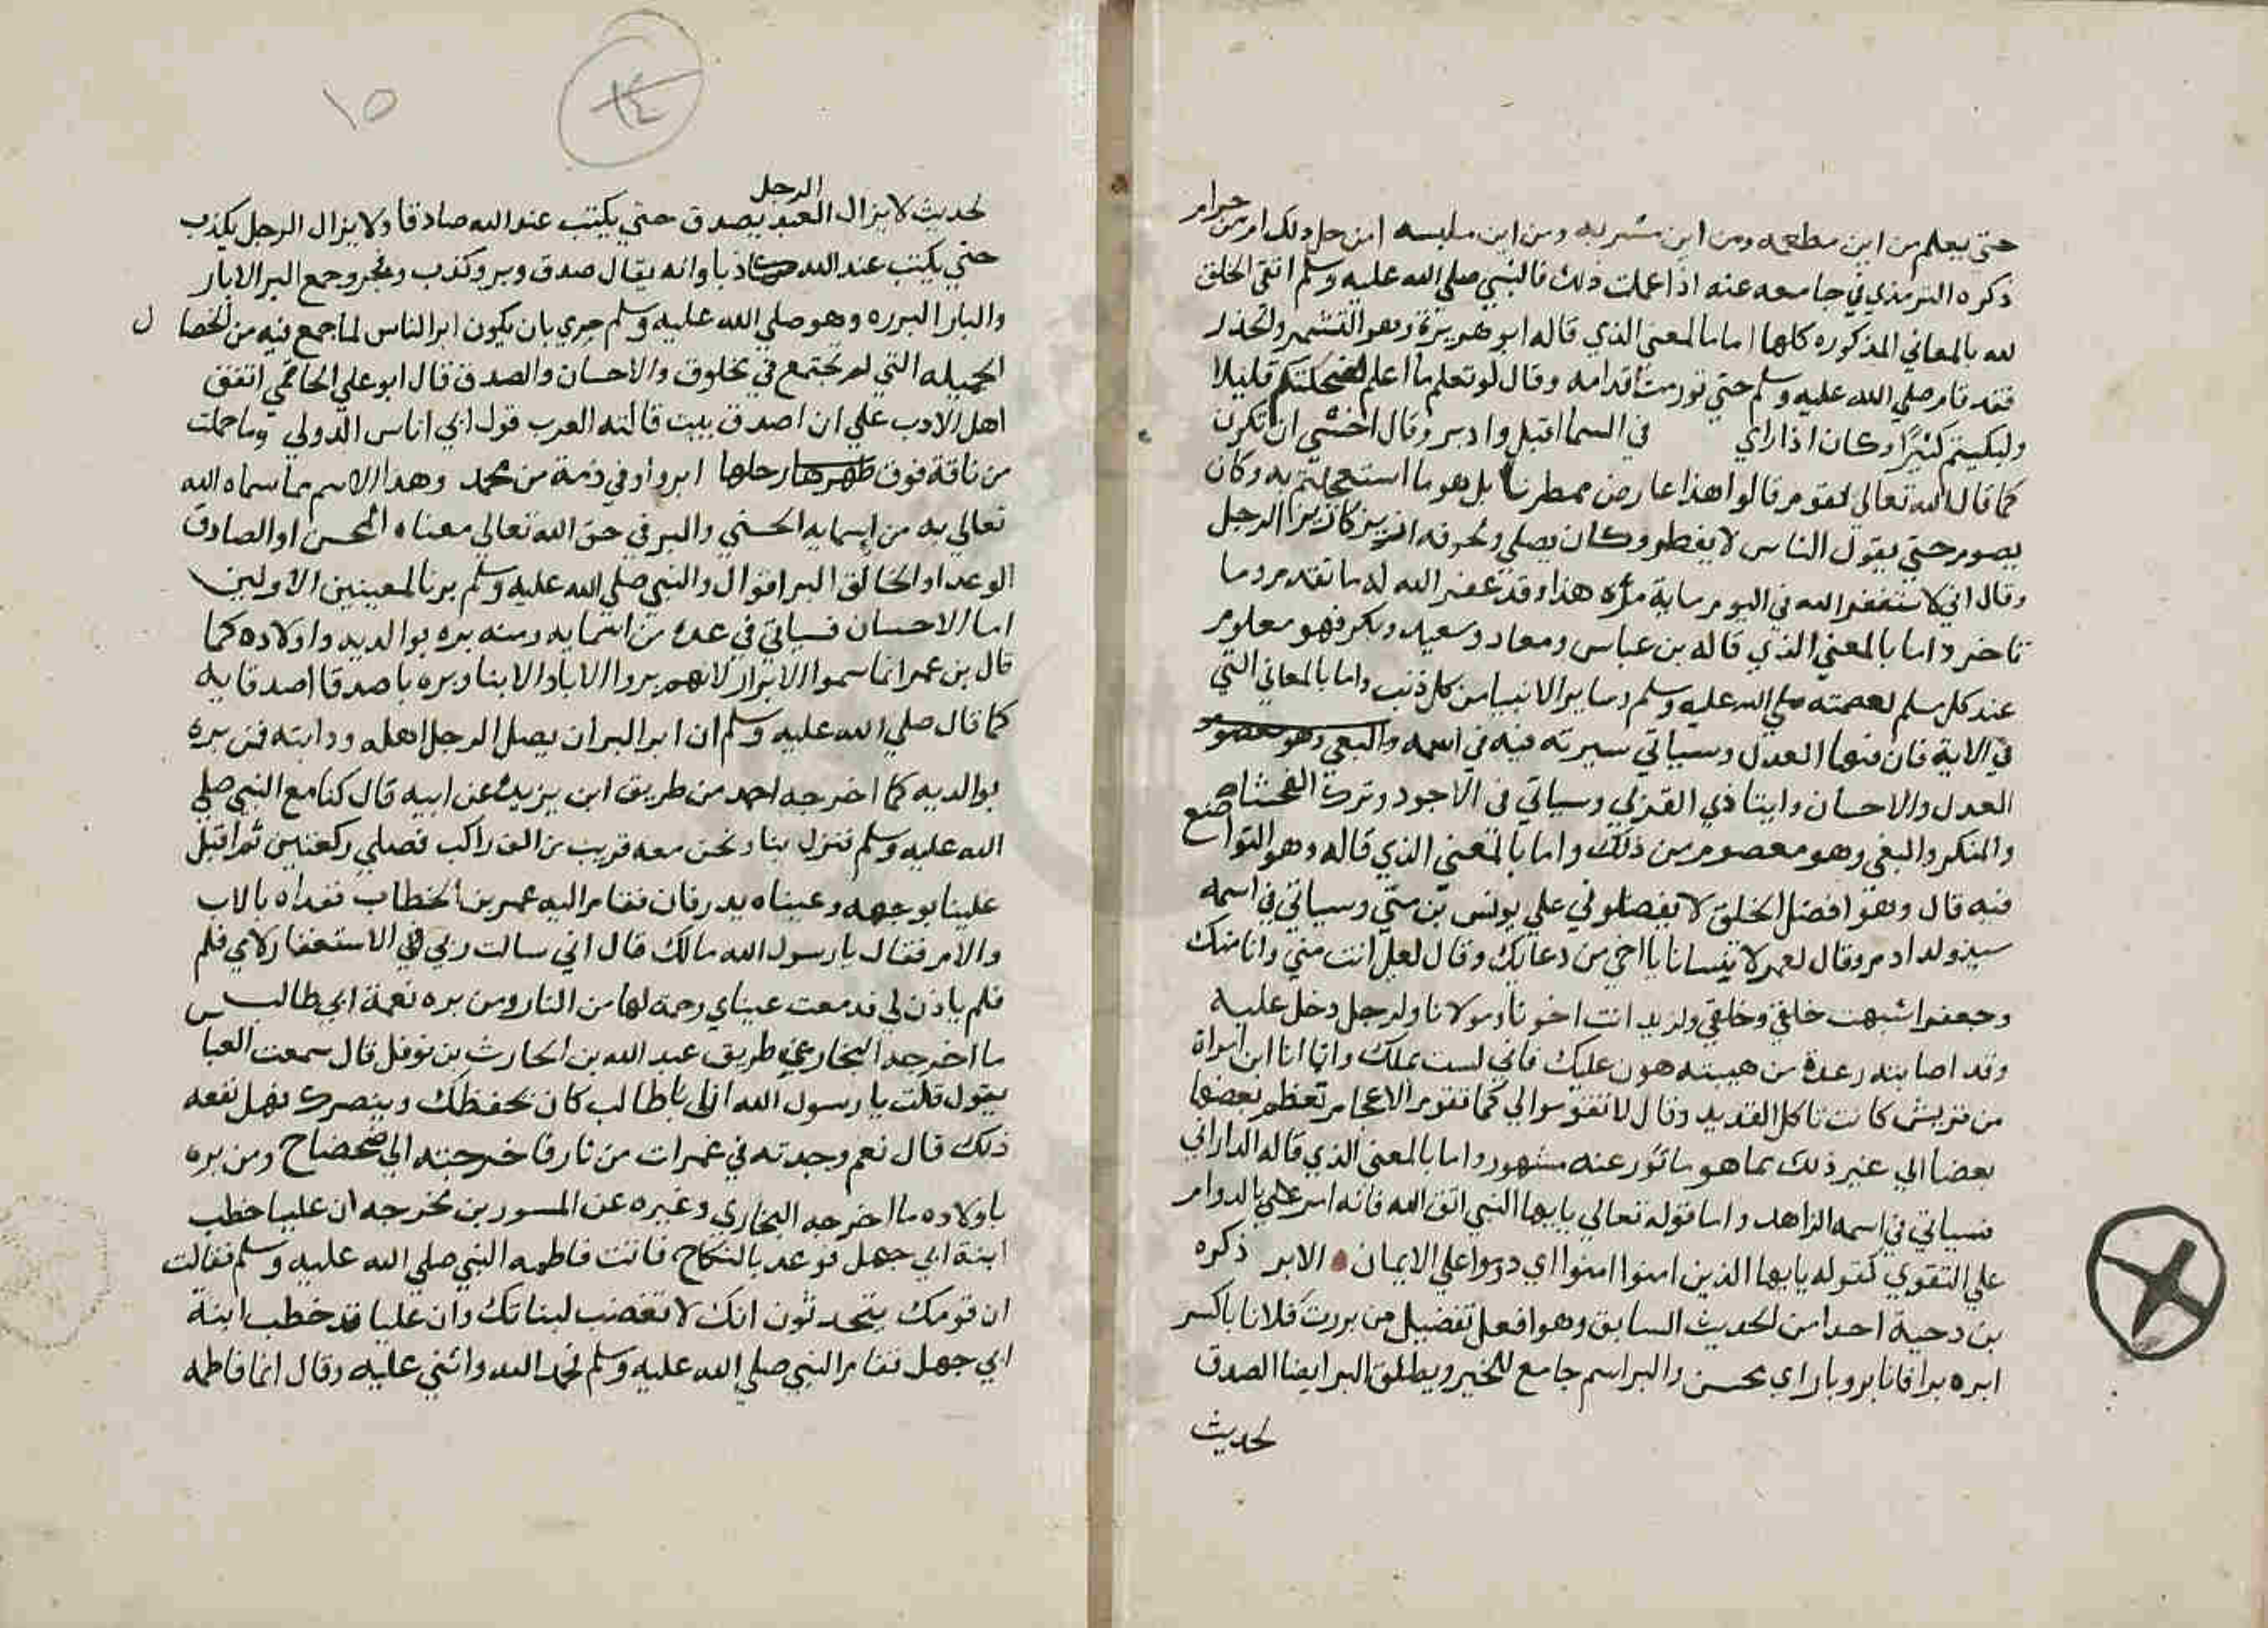 حتي يعلم من اين مطعمه ومن اين مشربه ومن اين ملبسه امن حل ذلك ام من حرام
ذكره الترمذي في جامعه عنه اذا علمت ذلك فالنبي صلي الله عليه وسلم اتقي الخلق
لله بالمعاني المذكوره كلها اما بالمعني الذي قاله ابو هريرة وهو التشمر والحذر
فقد قام صلي الله عليه وسلم حتي تورمت اقدامه وقال لو تعلم ما اعلم لضحكتم قليلا
ولبكيتم كثيرًا وكان اذا راي في السما اقبل وادبر وقال اخشي ان تكون
كما قال الله تعالي لقوم قالوا هذا عارض ممطرنا بل هو ما استعجلتم به وكان
يصوم حتي يقول الناس لا يفطر وكان يصلي ولجوفه ازيز كازيز الرجل
وقال اني لاستغفر الله في اليوم ماية مرة هذا وقد غفر الله له ما تقدم وما
تاخر واما بالمعني الذي قاله بن عباس ومعاد وسعيد وبكر فهو معلوم
عند كل مسلم لعصمته صلي الله عليه وسلم وساير الانبيا من كل ذنب واما بالمعاني التي
في الاية فان منها العدل وسياتي سيرته فيه في اسمه والبغي وهو معصوم
العدل والاحسان وايتا ذي القربي وسياتي في الاجود وترك الفحشا
والمنكر والبغي وهو معصوم من ذلك واما بالمعني الذي قاله وهو التواضع
فيه قال وهو افضل الخلق لا تفضلوني علي يونس بن متي وسياتي في اسمه
سيد ولد ادم وقال لعمر لا تنسانا يا اخي من دعايك وقال لعلي انت مني وانا منك
وجعفر اشبهت خلقي وخلقي ولزيد انت اخونا ومولانا ولرجل دخل عليه
وقد اصابته رعدة من هيبته هون عليك فاني لست بملك وانما انا ابن امراة
من قريش كانت تاكل القديد وقال لا تقوموا لي كما تقوم الاعجام تعظم بعضها
بعضا الي غير ذلك مما هو ماثور عنه مشهور واما بالمعني الذي قاله الداراني
فسياتي في اسمه الزاهد واما قوله تعالي يايها النبي اتق الله فانه امر علي بالدوام
علي التقوي كقوله يايها الذين امنوا امنوا اي دوموا علي الايمان الابر ذكره
بن دحية احدا من الحديث السابق وهو افعل تفضيل من بررت فلانا باكسر
ابره برا فانا بر وبار اي محسن والبر اسم جامع للخير ويطلق البر ايضا الصدق
لحديث
١٥
١٤
لحديث لا يزال العبد الرجل يصدق حتي يكتب عند الله صادقا ولا يزال الرجل يكذب
حتي يكتب عند الله كاذبا وانه يقال صدق وبر وكذب وفجر وجمع البر الابرار
والبار البرره وهو صلي الله عليه وسلم حري بان يكون ابر الناس لما جمع فيه من الخصال
الجميله التي لم تجتمع في مخلوق والاحسان والصدق قال ابو علي الحاتمي اتفق
اهل الادب علي ان اصدق بيت قالته العرب قول ابي اناس الدولي وما حملت
من ناقة فوق ظهرها رحلها ابر واوفي ذمة من محمد وهدا الاسم مما سماه الله
تعالي به من اسمايه الحسني والبر في حق الله تعالي معناه المحسن او الصادق
الوعد او الخالق البر اقوال والنبي صلي الله عليه وسلم بر بالمعنيين الاولين
اما الاحسان فسياتي في عدة من اسمايه ومنه بره بوالديه واولاده كما
قال بن عمر انما سموا الابرار لانهم بروا الابا والابنا وبره باصدقا اصدقايه
كما قال صلي الله عليه وسلم ان ابر البر ان يصل الرجل اهله ودابته فمن بره
بوالديه كما اخرجه احمد من طريق ابن يزيد عن ابيه قال كنا مع النبي صلي
الله عليه وسلم فنزل بنا ونحن معه قريب من الف راكب فصلي ركعتين ثم اقبل
علينا بوجهه وعيناه يدرفان فقام اليه عمر بن الخطاب ففداه بالاب
والام فقال يا رسول الله مالك قال اني سالت ربي في الاستغفار لامي فلم
فلم ياذن لي فدمعت عيناي رحمة لها من النار ومن بره نعمة ابي طالب
ما اخرجه البخاري من طريق عبد الله بن الحارث بن نوفل قال سمعت العباس
يقول قلت يا رسول الله ان ابا طالب كان يحفظك وينصرك فهل نفعه
ذلك قال نعم وجدته في غمرات من نار فاخرجته الي ضحضاح ومن بره
باولاده ما اخرجه البخاري وغيره عن المسور بن مخرجه ان عليا خطب
ابنة ابي جهل فوعد بالنكاح فاتت فاطمه النبي صلي الله عليه وسلم فقالت
ان قومك يتحدثون انك لا تغضب لبناتك وان عليا قد خطب ابنة
ابي جهل فقام النبي صلي الله عليه وسلم فحمد الله واثني عليه وقال انما فاطمه